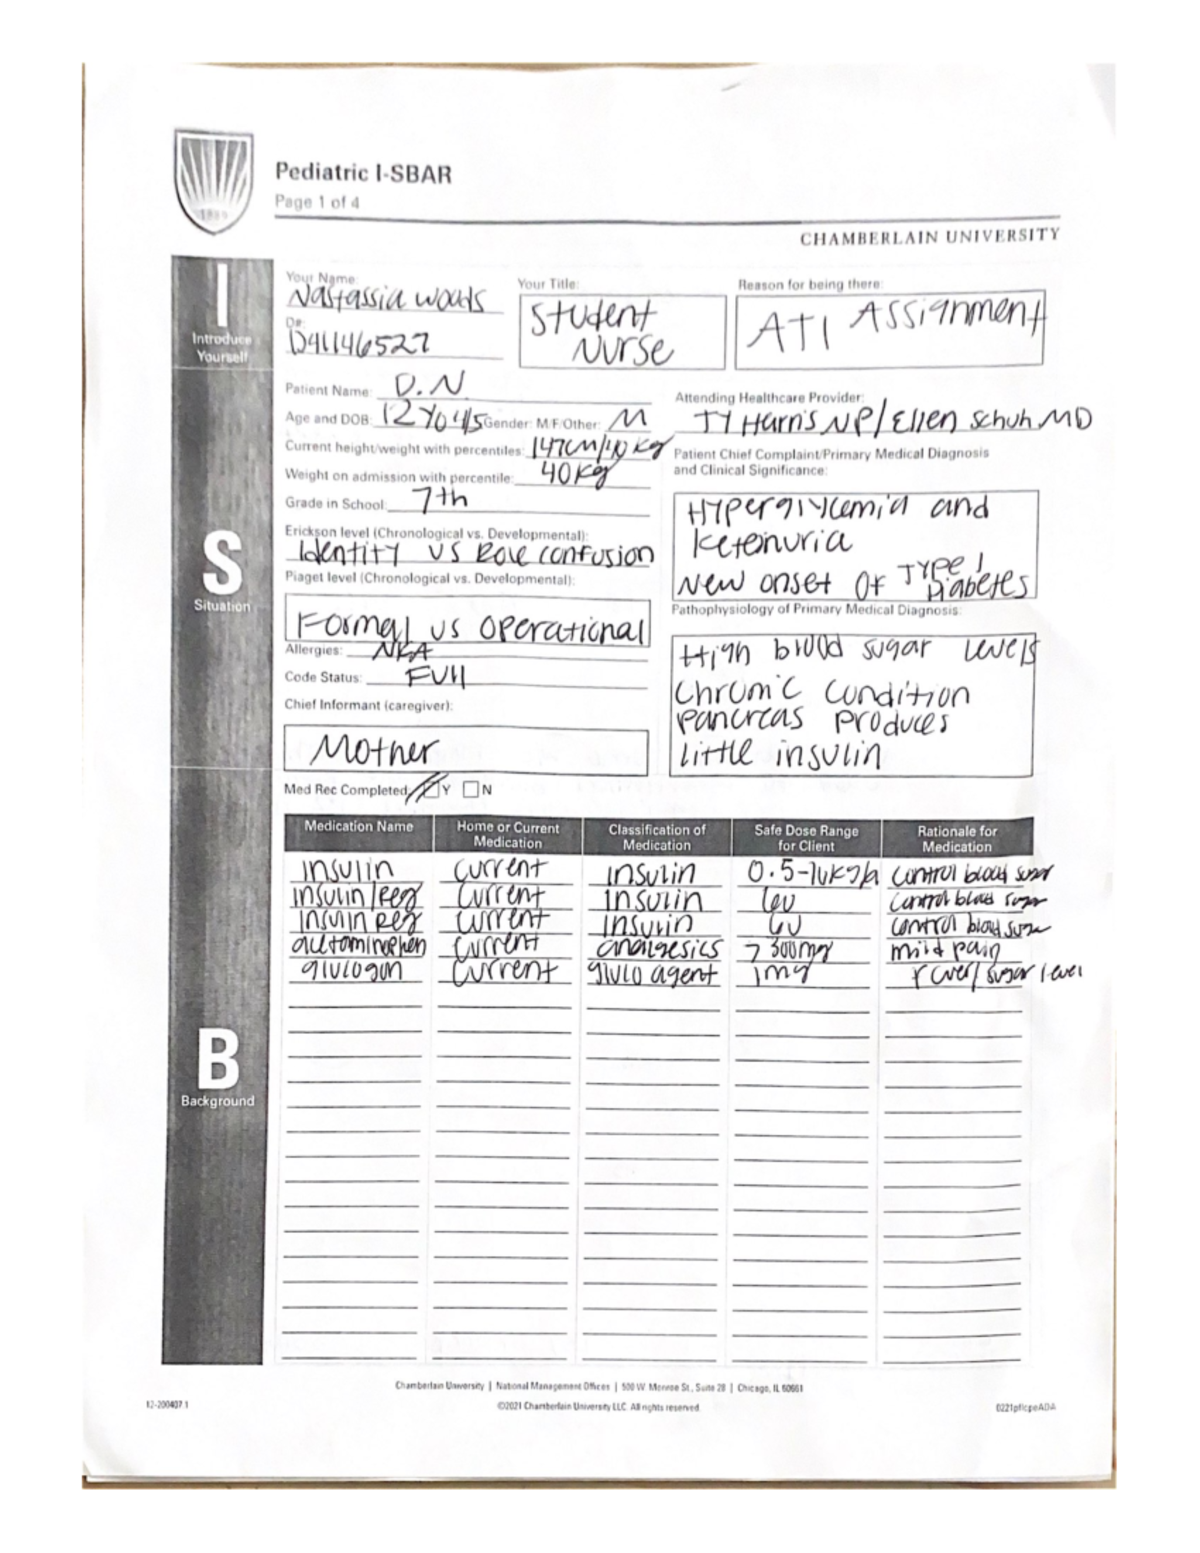 Pediatric I-SBAR
Page 1 of 4
1889
CHAMBERLAIN UNIVERSITY
I
Introduce Yourself
Your Name: Nastassia Woods
D#: D41146527
Your Title: Student Nurse
Reason for being there: ATI Assignment
S
Situation
Patient Name: D.N
Age and DOB: 12 Yo 4/5 Gender: M/F/Other: M
Current height/weight with percentiles: 147cm/40 kg
Weight on admission with percentile: 40kg
Grade in School: 7th
Erickson level (Chronological vs. Developmental):
Identity vs Role confusion
Piaget level (Chronological vs. Developmental):
Formal vs operational
Allergies: NKA
Code Status: Full
Chief Informant (caregiver):
Mother
Attending Healthcare Provider:
TY Harris NP/Ellen Schuh MD
Patient Chief Complaint/Primary Medical Diagnosis
and Clinical Significance:
Hyperglycemia and
ketenuria
New onset of Type 1
Diabetes
Pathophysiology of Primary Medical Diagnosis:
High blood sugar levels
Chronic condition
pancreas produces
little insulin
Med Rec Completed: Y N
B
Background
Medication Name Home or Current Medication Classification of Medication Safe Dose Range for Client Rationale for Medication
insulin current insulin control blood sugar
insulin/reg current insulin 6u control blood sugar
insulin reg current insulin control blood sugar
current analgesics mild pain
glucogon current gluco agent 1mg sugar level
Chamberlain University | National Management Offices | 500 W. Monroe St., Suite 28 | Chicago, IL 60661
12-200407.1
©2021 Chamberlain University LLC. All rights reserved.
0221pflcpeADA